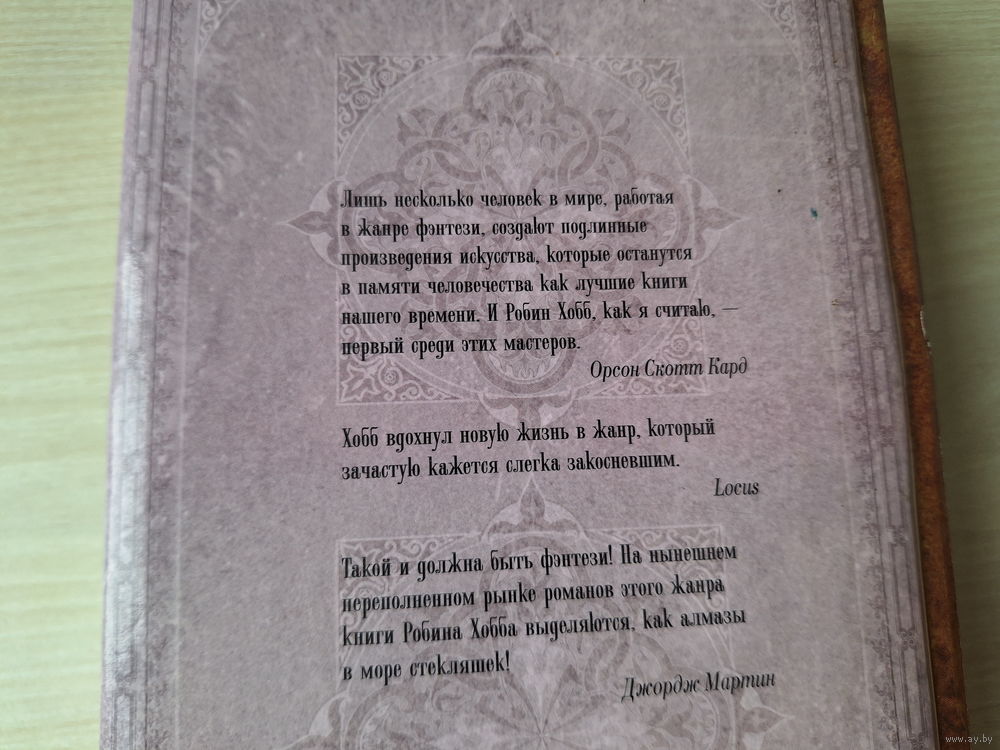 Лишь несколько человек в мире, работая
в жанре фэнтези, создают подлинные
произведения искусства, которые останутся
в памяти человечества как лучшие книги
нашего времени. И Робин Хобб, как я считаю, —
первый среди этих мастеров.
Орсон Скотт Кард
Хобб вдохнул новую жизнь в жанр, который
зачастую кажется слегка закосневшим.
Locus
Такой и должна быть фэнтези! На нынешнем
переполненном рынке романов этого жанра
книги Робина Хобба выделяются, как алмазы
в море стекляшек!
Джордж Мартин
www.ay.by